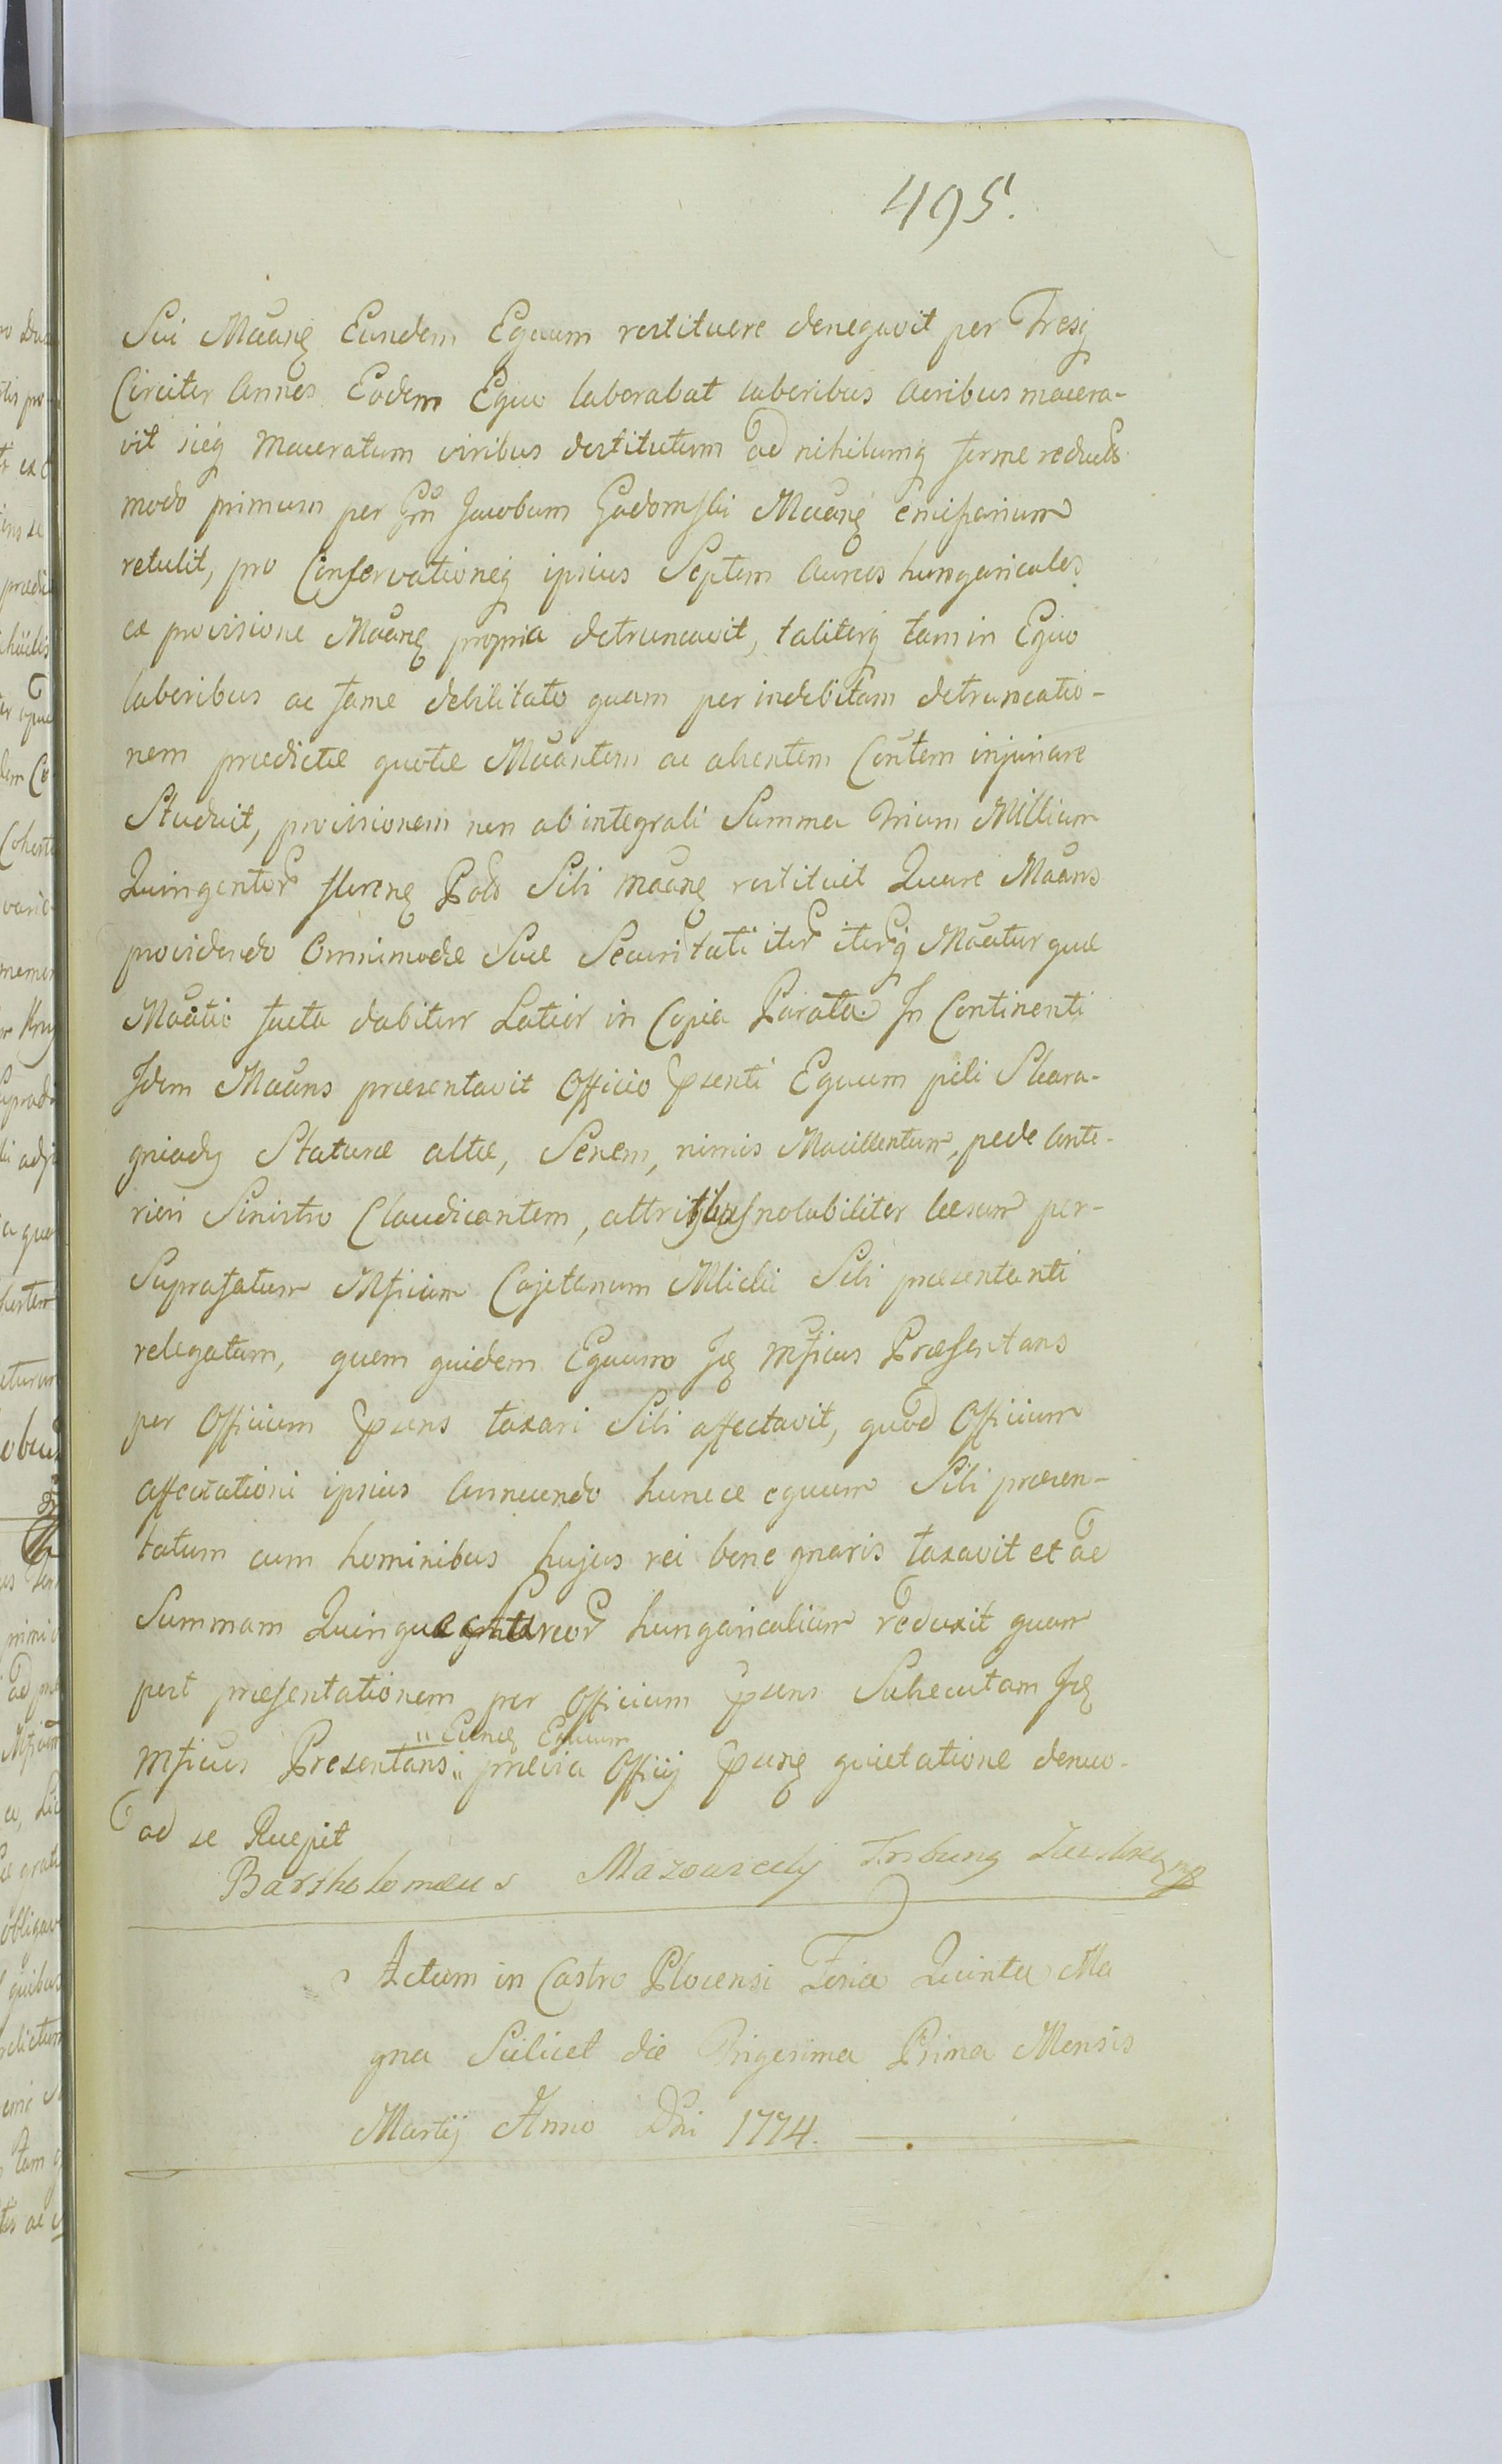 495.
Sui Mãang Eundem Equum restituere denegavit per Tresq
Circiter Annos Eodem Equo laborabat laboribus Acribus macera-
vit sicq maceratum viribus destitutum ad nihilumq ferme reduct
modo primum per Gm Jacobum Gadomski Mãang emissarium
retulit, pro Conservationeq ipsius Septem Aureos hungaricales
ex provisione Mãang propria detruncavit, taliterq tam in Equo
laboribus ac fame debilitato quam per indebitam detruncatio-
nem prædictæ quotæ Mãantem ac absentem Contem injuriare
Studuit, provisionem non ab integrali Summa trium Millium
Quingentor floreng Polo Sibi mãang restituit Quare Mãans
providendo Omnimodæ Suæ Securitati iter iterq Mãatur quæ
Mãatio facta dabitur Latior in Copia Parata. In Continenti
Idem Mãans præsentavit Officio pnsenti Equum pili Skara-
gniady Staturæ altæ, Senem, nimis Macillentum, pede Ante-
riori Sinistro Claudicantem, notabiliter læsum per-
Suprafatum Mficum Cajetanum Mlicki Sibi præsentanti
relegatum, quem quidem Equum Iq Mficus Præsentans
per Officium pnsens taxari Sibi affectavit, quod Officium
affectationi ipsius Annuendo huncce equum Sibi præsen-
tatum cum hominibus hujus rei bene gnaris taxavit et ad
Summam Quinque Aureor hungaricalium reduxit quam
post præsentationem per Officium pnsens Subsecutam Iq
" Eunq Equum
Mficus Presentans " prævia Officij pnsng quietatione denuo
ad se Recepit
Bartholomæus Mazowiecky Tribung
Actum in Castro Plocensi Feria Quinta Ma
gna Scilicet die Trigesima Prima Mensis
Martij Anno Dni 1774.